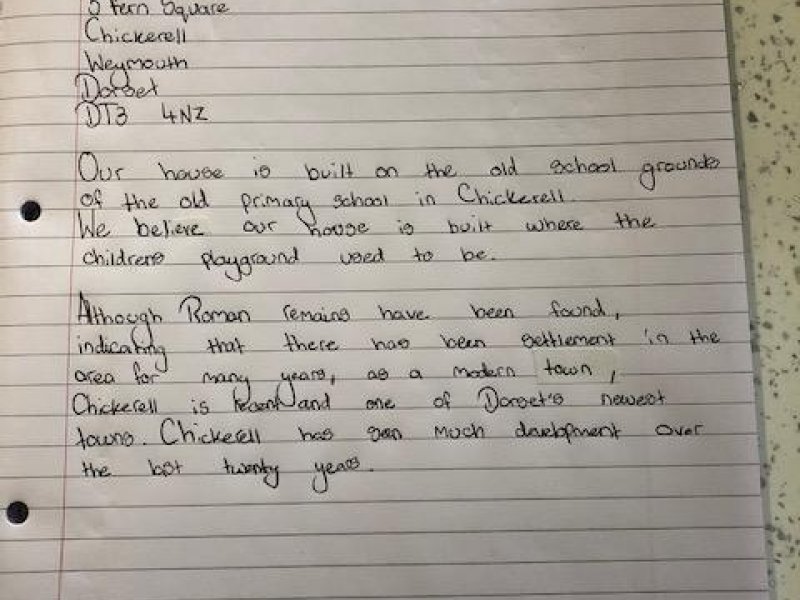 5 Fern Square
Chickerell
Weymouth
Dorset
DT3 4NZ
Our house is built on the old school grounds
of the old primary school in Chickerell.
We believe our house is built where the
childrens playground used to be.
Although Roman remains have been found,
indicating that there has been settlement in the
area for many years, as a modern town,
Chickerell is recent and one of Dorset's newest
towns. Chickerell has seen much development over
the last twenty years.